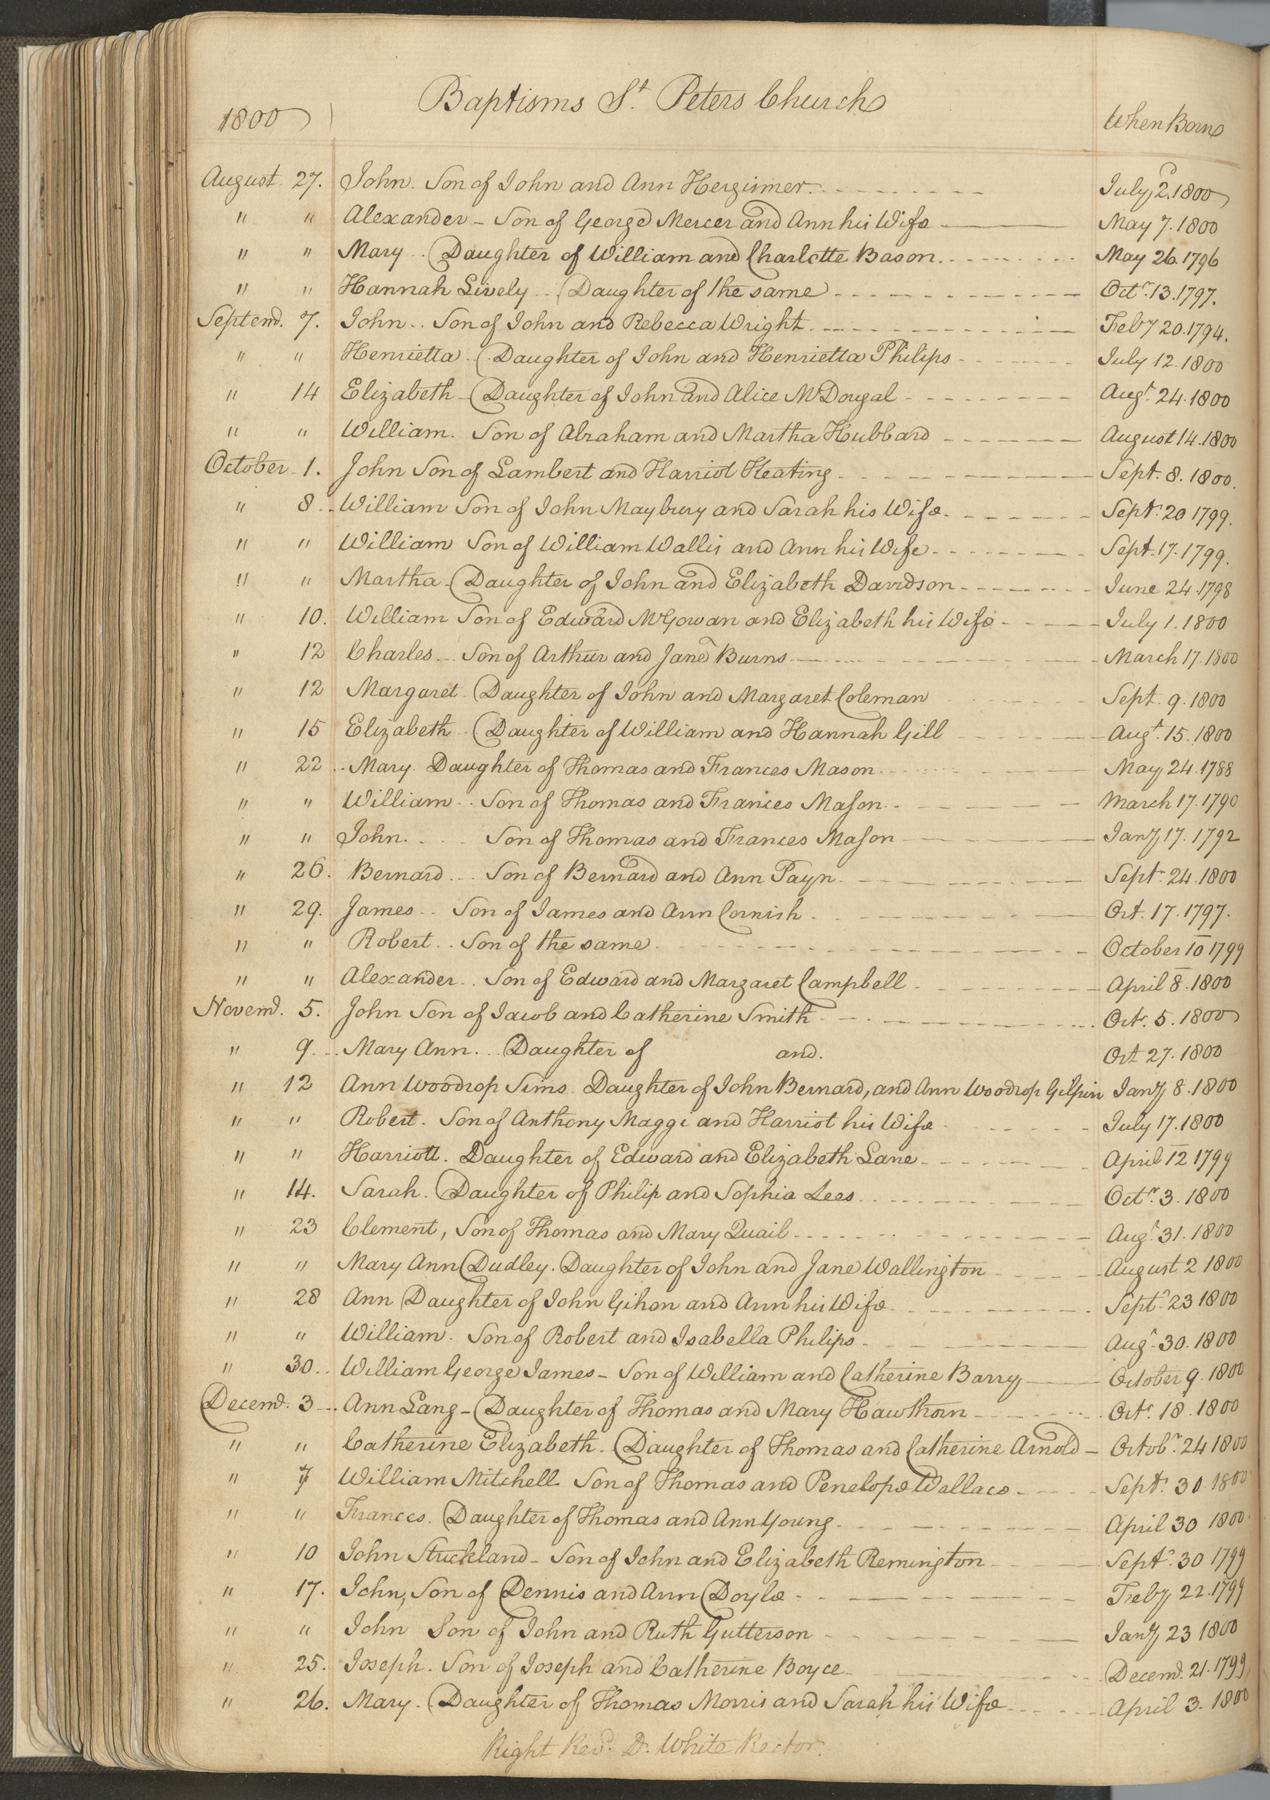 Baptisms St. Peters Church
1800 When Born
August 27. John. Son of John and Ann Hergimer. July 2. 1800
" " Alexander - Son of George Mercer and Ann his Wife May 7. 1800
" " Mary. Daughter of William and Charlotte Bason. May 26. 1796
" " Hannah Lively. Daughter of the same Octr. 13. 1797.
Septemr. 7. John. Son of John and Rebecca Wright Feby 20. 1794.
" " Henrietta. Daughter of John and Henrietta Philips July 12. 1800
" 14 Elizabeth - Daughter of John and Alice McDougal Augt. 24. 1800
" " William. Son of Abraham and Martha Hubbard August 14. 1800
October 1. John Son of Lambert and Harriot Keating Sept. 8. 1800.
" 8 William Son of John Maybury and Sarah his Wife. Sept. 20 1799.
" " William Son of William Wallis and Ann his Wife Sept. 17. 1799.
" " Martha Daughter of John and Elizabeth Davidson June 24 1798
" 10. William Son of Edward McGowan and Elizabeth his Wife July 1. 1800
" 12 Charles Son of Arthur and Jane Burns March 17. 1800
" 12 Margaret Daughter of John and Margaret Coleman Sept. 9. 1800
" 15 Elizabeth Daughter of William and Hannah Gill Augt. 15. 1800
" 22 Mary. Daughter of Thomas and Frances Mason May 24. 1788
" " William Son of Thomas and Frances Mason March 17. 1790
" " John. Son of Thomas and Frances Mason Jany 17. 1792
" 26. Bernard Son of Bernard and Ann Payn Sept. 24. 1800
" 29. James Son of James and Ann Cornish Oct. 17. 1797.
" " Robert. Son of the same October 10 1799
" " Alexander. Son of Edward and Margaret Campbell April 8. 1800
Novemr. 5. John Son of Jacob and Catherine Smith Oct. 5. 1800
" 9. Mary Ann. Daughter of and. Oct 27. 1800
" 12 Ann Woodrop Sims. Daughter of John Bernard, and Ann Woodrop Gilpin Jany 8. 1800
" " Robert. Son of Anthony Maggi and Harriot his Wife July 17. 1800
" " Harriott. Daughter of Edward and Elizabeth Lane April 12 1799
" 14. Sarah. Daughter of Philip and Sophia Lees Octr. 3. 1800
" 23 Clement, Son of Thomas and Mary Quail Augt. 31. 1800
" " Mary Ann Dudley. Daughter of John and Jane Wallington August 2 1800
" 28 Ann Daughter of John Gihon and Ann his Wife. Sept. 23 1800
" " William. Son of Robert and Isabella Philips Augt. 30. 1800
" 30 William George James - Son of William and Catherine Barry October 9. 1800
Decemr. 3 Ann Lang - Daughter of Thomas and Mary Hawthorn Octr. 18. 1800
" " Catherine Elizabeth. Daughter of Thomas and Catherine Arnold Octobr. 24 1800
" 7 William Mitchell Son of Thomas and Penelope Wallace Sept. 30. 1800
" " Frances. Daughter of Thomas and Ann Young April 30 1800.
" 10 John Struckland - Son of John and Elizabeth Remington Septr. 30 1799
" 17. John, Son of Dennis and Ann Doyle Feby 22. 1799
" " John Son of John and Ruth Gutterson Jany 23 1800
" 25. Joseph. Son of Joseph and Catherine Boyce Decemr. 21. 1799
" 26. Mary. Daughter of Thomas Morris and Sarah his Wife April 3. 1800
Right Revd. Dr. White Rector.